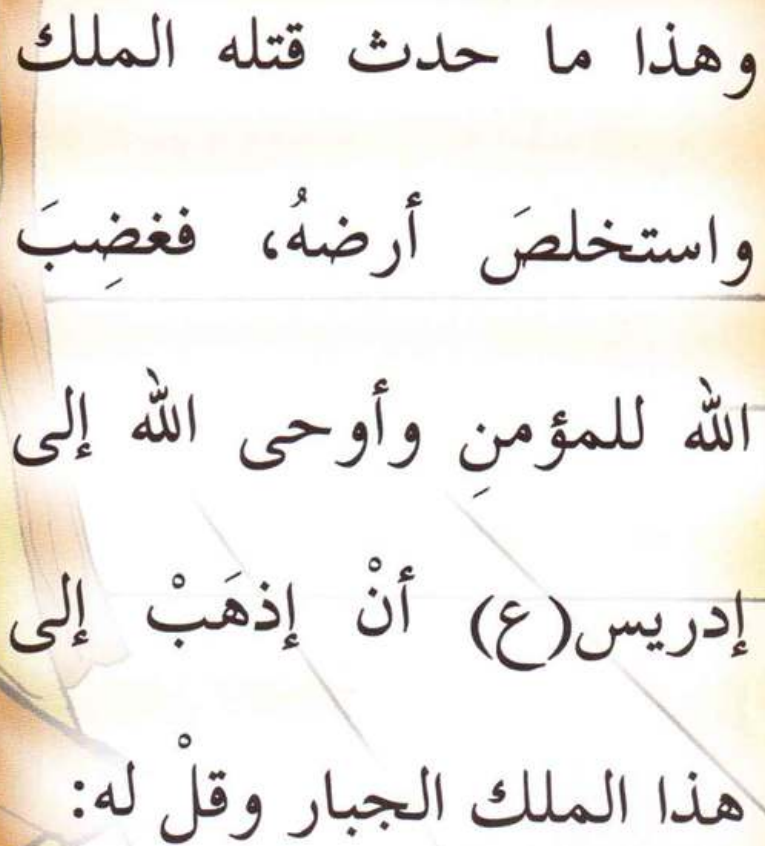 وهذا ما حدث قتله الملك
واستخلصَ أرضهُ، فغضِبَ
الله للمؤمنِ وأوحى الله إلى
إدريس(ع) أنْ إذهَبْ إلى
هذا الملك الجبار وقلْ له: